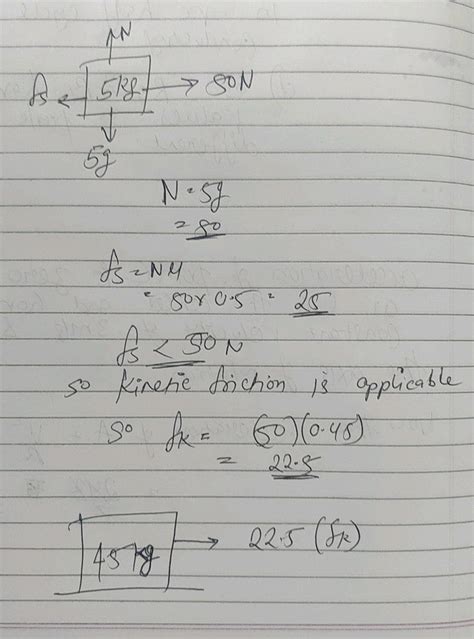 N
fs 5kg 50N
5g
N = 5g
= 50
fs = NM
= 50 × 0.5 = 25
fs < 50 N
so kinetic friction is applicable
so fk = (50)(0.45)
= 22.5
45kg 22.5 (fk)